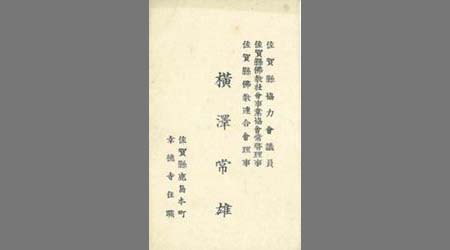 佐賀縣協力會議員
佐賀縣佛教社會事業協會常務理事
佐賀縣佛教連合會理事
橫澤常雄
佐賀縣鹿島本町
幸德寺住職